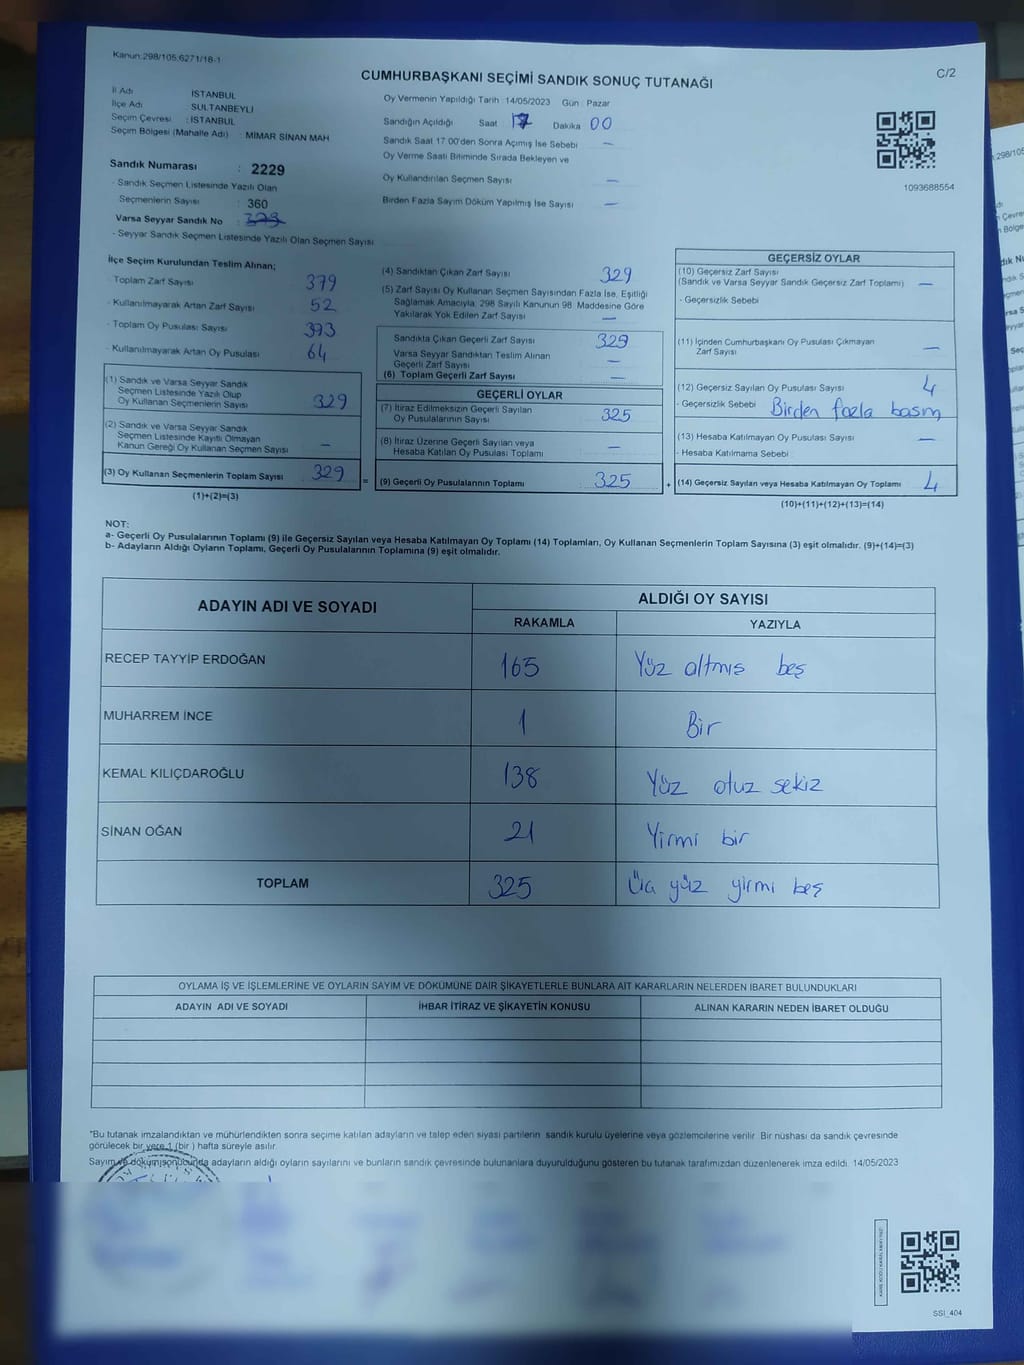 Kanun:298/105,6271/18-1
C/2
CUMHURBAŞKANI SEÇİMİ SANDIK SONUÇ TUTANAĞI
İl Adı : İSTANBUL
İlçe Adı : SULTANBEYLİ
Seçim Çevresi : İSTANBUL
Seçim Bölgesi (Mahalle Adı) : MİMAR SİNAN MAH
Sandık Numarası : 2229
- Sandık Seçmen Listesinde Yazılı Olan
Seçmenlerin Sayısı : 360
Varsa Seyyar Sandık No :
- Seyyar Sandık Seçmen Listesinde Yazılı Olan Seçmen Sayısı
Oy Vermenin Yapıldığı Tarih : 14/05/2023 Gün : Pazar
Sandığın Açıldığı Saat 17 Dakika 00
Sandık Saat 17:00'den Sonra Açımış İse Sebebi —
Oy Verme Saati Bitiminde Sırada Bekleyen ve
Oy Kullandırılan Seçmen Sayısı —
Birden Fazla Sayım Döküm Yapılmış İse Sayısı —
1093688554
İlçe Seçim Kurulundan Teslim Alınan;
- Toplam Zarf Sayısı 379
- Kullanılmayarak Artan Zarf Sayısı 52
- Toplam Oy Pusulası Sayısı 393
- Kullanılmayarak Artan Oy Pusulası 64
(1) Sandık ve Varsa Seyyar Sandık
Seçmen Listesinde Yazılı Olup
Oy Kullanan Seçmenlerin Sayısı 329
(2) Sandık ve Varsa Seyyar Sandık
Seçmen Listesinde Kayıtlı Olmayan
Kanun Gereği Oy Kullanan Seçmen Sayısı —
(3) Oy Kullanan Seçmenlerin Toplam Sayısı 329 =
(1)+(2)=(3)
(4) Sandıktan Çıkan Zarf Sayısı 329
(5) Zarf Sayısı Oy Kullanan Seçmen Sayısından Fazla İse, Eşitliği
Sağlamak Amacıyla, 298 Sayılı Kanunun 98. Maddesine Göre
Yakılarak Yok Edilen Zarf Sayısı —
Sandıkta Çıkan Geçerli Zarf Sayısı 329
Varsa Seyyar Sandıktan Teslim Alınan
Geçerli Zarf Sayısı —
(6) Toplam Geçerli Zarf Sayısı —
GEÇERLİ OYLAR
(7) İtiraz Edilmeksizin Geçerli Sayılan
Oy Pusulalarının Sayısı 325
(8) İtiraz Üzerine Geçerli Sayılan veya
Hesaba Katılan Oy Pusulası Toplamı —
(9) Geçerli Oy Pusulalarının Toplamı 325 +
GEÇERSİZ OYLAR
(10) Geçersiz Zarf Sayısı
(Sandık ve Varsa Seyyar Sandık Geçersiz Zarf Toplamı) —
- Geçersizlik Sebebi
(11) İçinden Cumhurbaşkanı Oy Pusulası Çıkmayan
Zarf Sayısı —
(12) Geçersiz Sayılan Oy Pusulası Sayısı 4
- Geçersizlik Sebebi Birden fazla basım
(13) Hesaba Katılmayan Oy Pusulası Sayısı —
- Hesaba Katılmama Sebebi
(14) Geçersiz Sayılan veya Hesaba Katılmayan Oy Toplamı 4
(10)+(11)+(12)+(13)=(14)
NOT:
a- Geçerli Oy Pusulalarının Toplamı (9) ile Geçersiz Sayılan veya Hesaba Katılmayan Oy Toplamı (14) Toplamları, Oy Kullanan Seçmenlerin Toplam Sayısına (3) eşit olmalıdır. (9)+(14)=(3)
b- Adayların Aldığı Oyların Toplamı, Geçerli Oy Pusulalarının Toplamına (9) eşit olmalıdır.
ADAYIN ADI VE SOYADI
ALDIĞI OY SAYISI
RAKAMLA YAZIYLA
RECEP TAYYİP ERDOĞAN 165 Yüz altmış beş
MUHARREM İNCE 1 Bir
KEMAL KILIÇDAROĞLU 138 Yüz otuz sekiz
SİNAN OĞAN 21 Yirmi bir
TOPLAM 325 Üç yüz yirmi beş
OYLAMA İŞ VE İŞLEMLERİNE VE OYLARIN SAYIM VE DÖKÜMÜNE DAİR ŞİKAYETLERLE BUNLARA AİT KARARLARIN NELERDEN İBARET BULUNDUKLARI
ADAYIN ADI VE SOYADI İHBAR İTİRAZ VE ŞİKAYETİN KONUSU ALINAN KARARIN NEDEN İBARET OLDUĞU
*Bu tutanak imzalandıktan ve mühürlendikten sonra seçime katılan adayların ve talep eden siyasi partilerin sandık kurulu üyelerine veya gözlemcilerine verilir. Bir nüshası da sandık çevresinde
görülecek bir yere 1 (bir) hafta süreyle asılır.
Sayım ve döküm sonucunda adayların aldığı oyların sayılarını ve bunların sandık çevresinde bulunanlara duyurulduğunu gösteren bu tutanak tarafımızdan düzenlenerek imza edildi. 14/05/2023
SSI_404